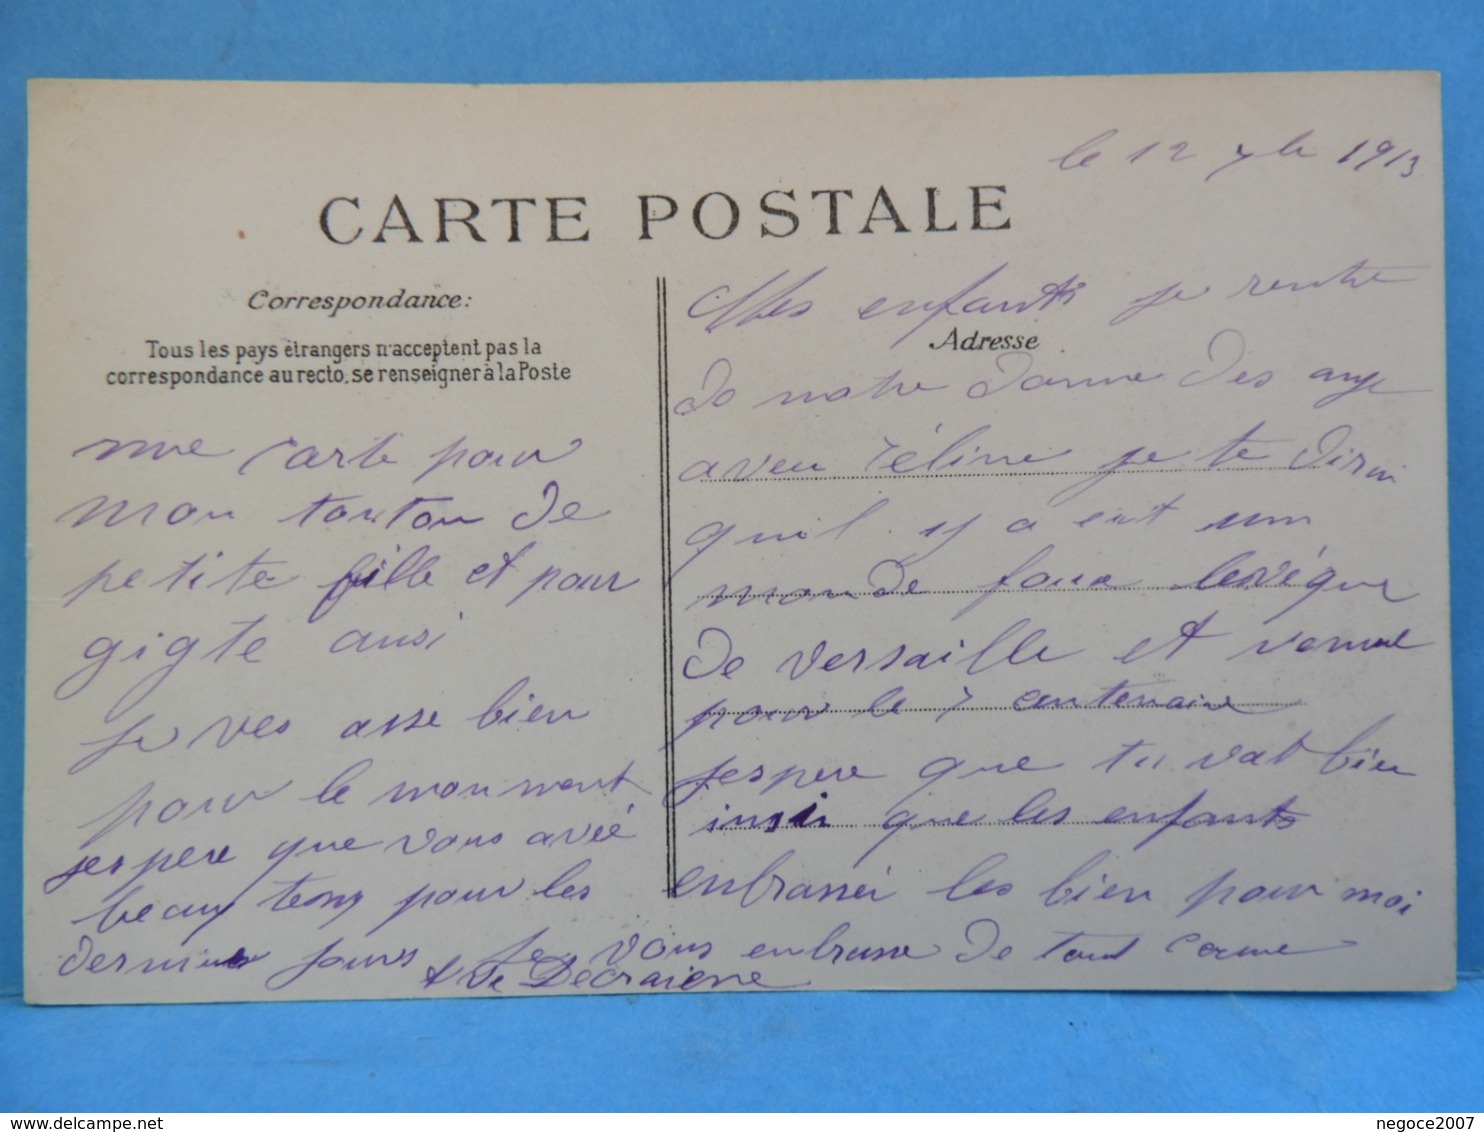 le 12 7bre 1913
CARTE POSTALE
Correspondance:
Tous les pays étrangers n'acceptent pas la
correspondance au recto, se renseigner à la Poste
Adresse
Mes enfants je rentre
de notre damme des ange
aveu Céline je te dirai
quil y a eut un
monde foux levéque
de versaille et venue
pour le 7 centenaire
jespere que tu vat bien
insi que les enfants
enbrasser les bien pour moi
une carte pour
mon tonton de
petite fille et pour
gigte ausi
je ves asse bien
pour le monment
jespere que vous avéé
beau tems pour les
dernier jours je vous enbrasse de tout coeur
Ve Decraiene
delcampe.net
negoce2007